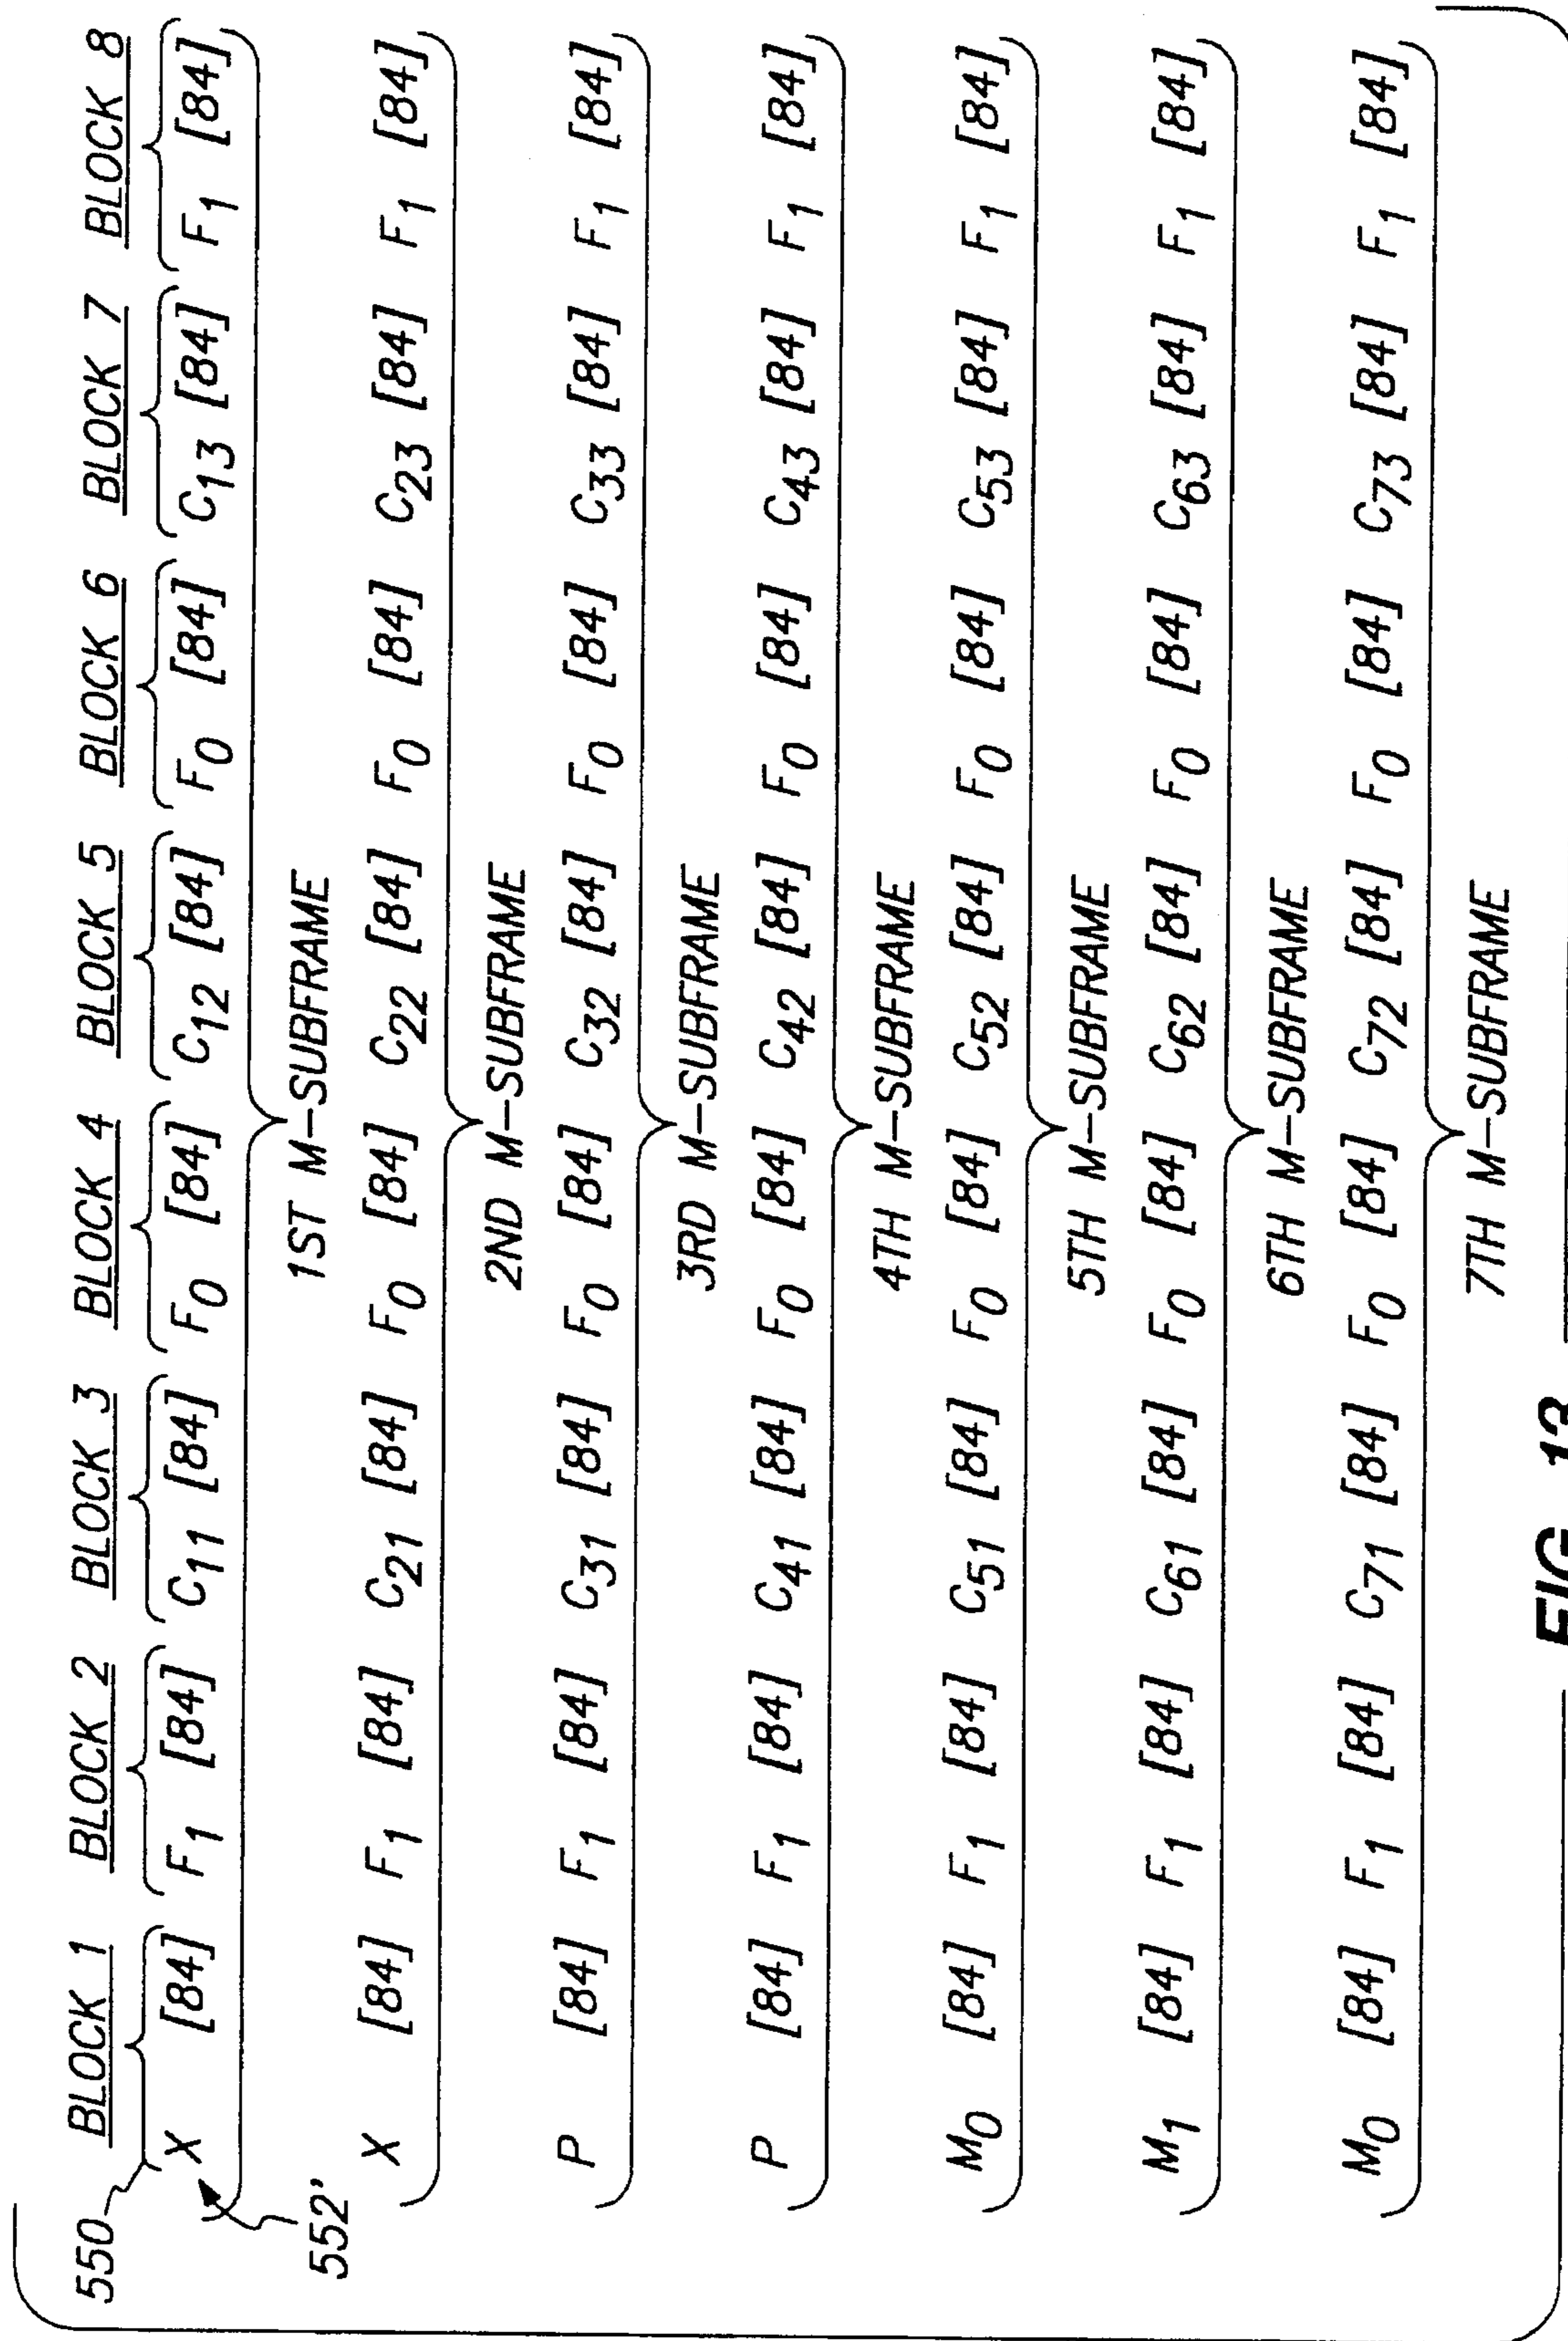 BLOCK 1 BLOCK 2 BLOCK 3 BLOCK 4 BLOCK 5 BLOCK 6 BLOCK 7 BLOCK 8
550
X [84] F1 [84] C11 [84] F0 [84] C12 [84] F0 [84] C13 [84] F1 [84]
552'
1ST M-SUBFRAME
X [84] F1 [84] C21 [84] F0 [84] C22 [84] F0 [84] C23 [84] F1 [84]
2ND M-SUBFRAME
P [84] F1 [84] C31 [84] F0 [84] C32 [84] F0 [84] C33 [84] F1 [84]
3RD M-SUBFRAME
P [84] F1 [84] C41 [84] F0 [84] C42 [84] F0 [84] C43 [84] F1 [84]
4TH M-SUBFRAME
M0 [84] F1 [84] C51 [84] F0 [84] C52 [84] F0 [84] C53 [84] F1 [84]
5TH M-SUBFRAME
M1 [84] F1 [84] C61 [84] F0 [84] C62 [84] F0 [84] C63 [84] F1 [84]
6TH M-SUBFRAME
M0 [84] F1 [84] C71 [84] F0 [84] C72 [84] F0 [84] C73 [84] F1 [84]
7TH M-SUBFRAME